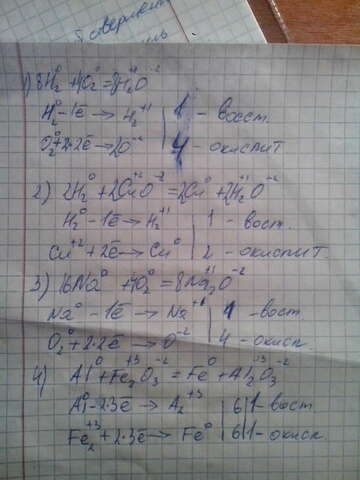 1) 8H₂⁰ + 4O₂⁰ = 8H₂⁺¹O⁻²
H₂⁰ - 1ē → H₂⁺¹ | 1 - восст.
O₂⁰ + 2·2ē → 2O⁻² | 4 - окислит
2) 2H₂⁰ + 2Cu⁺²O⁻² = 2Cu⁰ + 2H₂⁺¹O⁻²
H₂⁰ - 1ē → H₂⁺¹ | 1 - вост.
Cu⁺² + 2ē → Cu⁰ | 2 - окислит.
3) 16Na⁰ + 4O₂⁰ = 8Na₂⁺¹O⁻²
Na⁰ - 1ē → Na⁺¹ | 1 - вост
O₂⁰ + 2·2ē → O⁻² | 4 - окисл.
4) Al⁰ + Fe₂⁺³O₃⁻² = Fe⁰ + Al₂⁺³O₃⁻²
Al⁰ - 2·3ē → A₂⁺³ | 6 | 1 - вост.
Fe₂⁺³ + 2·3ē → Fe⁰ | 6 | 1 - окисл.